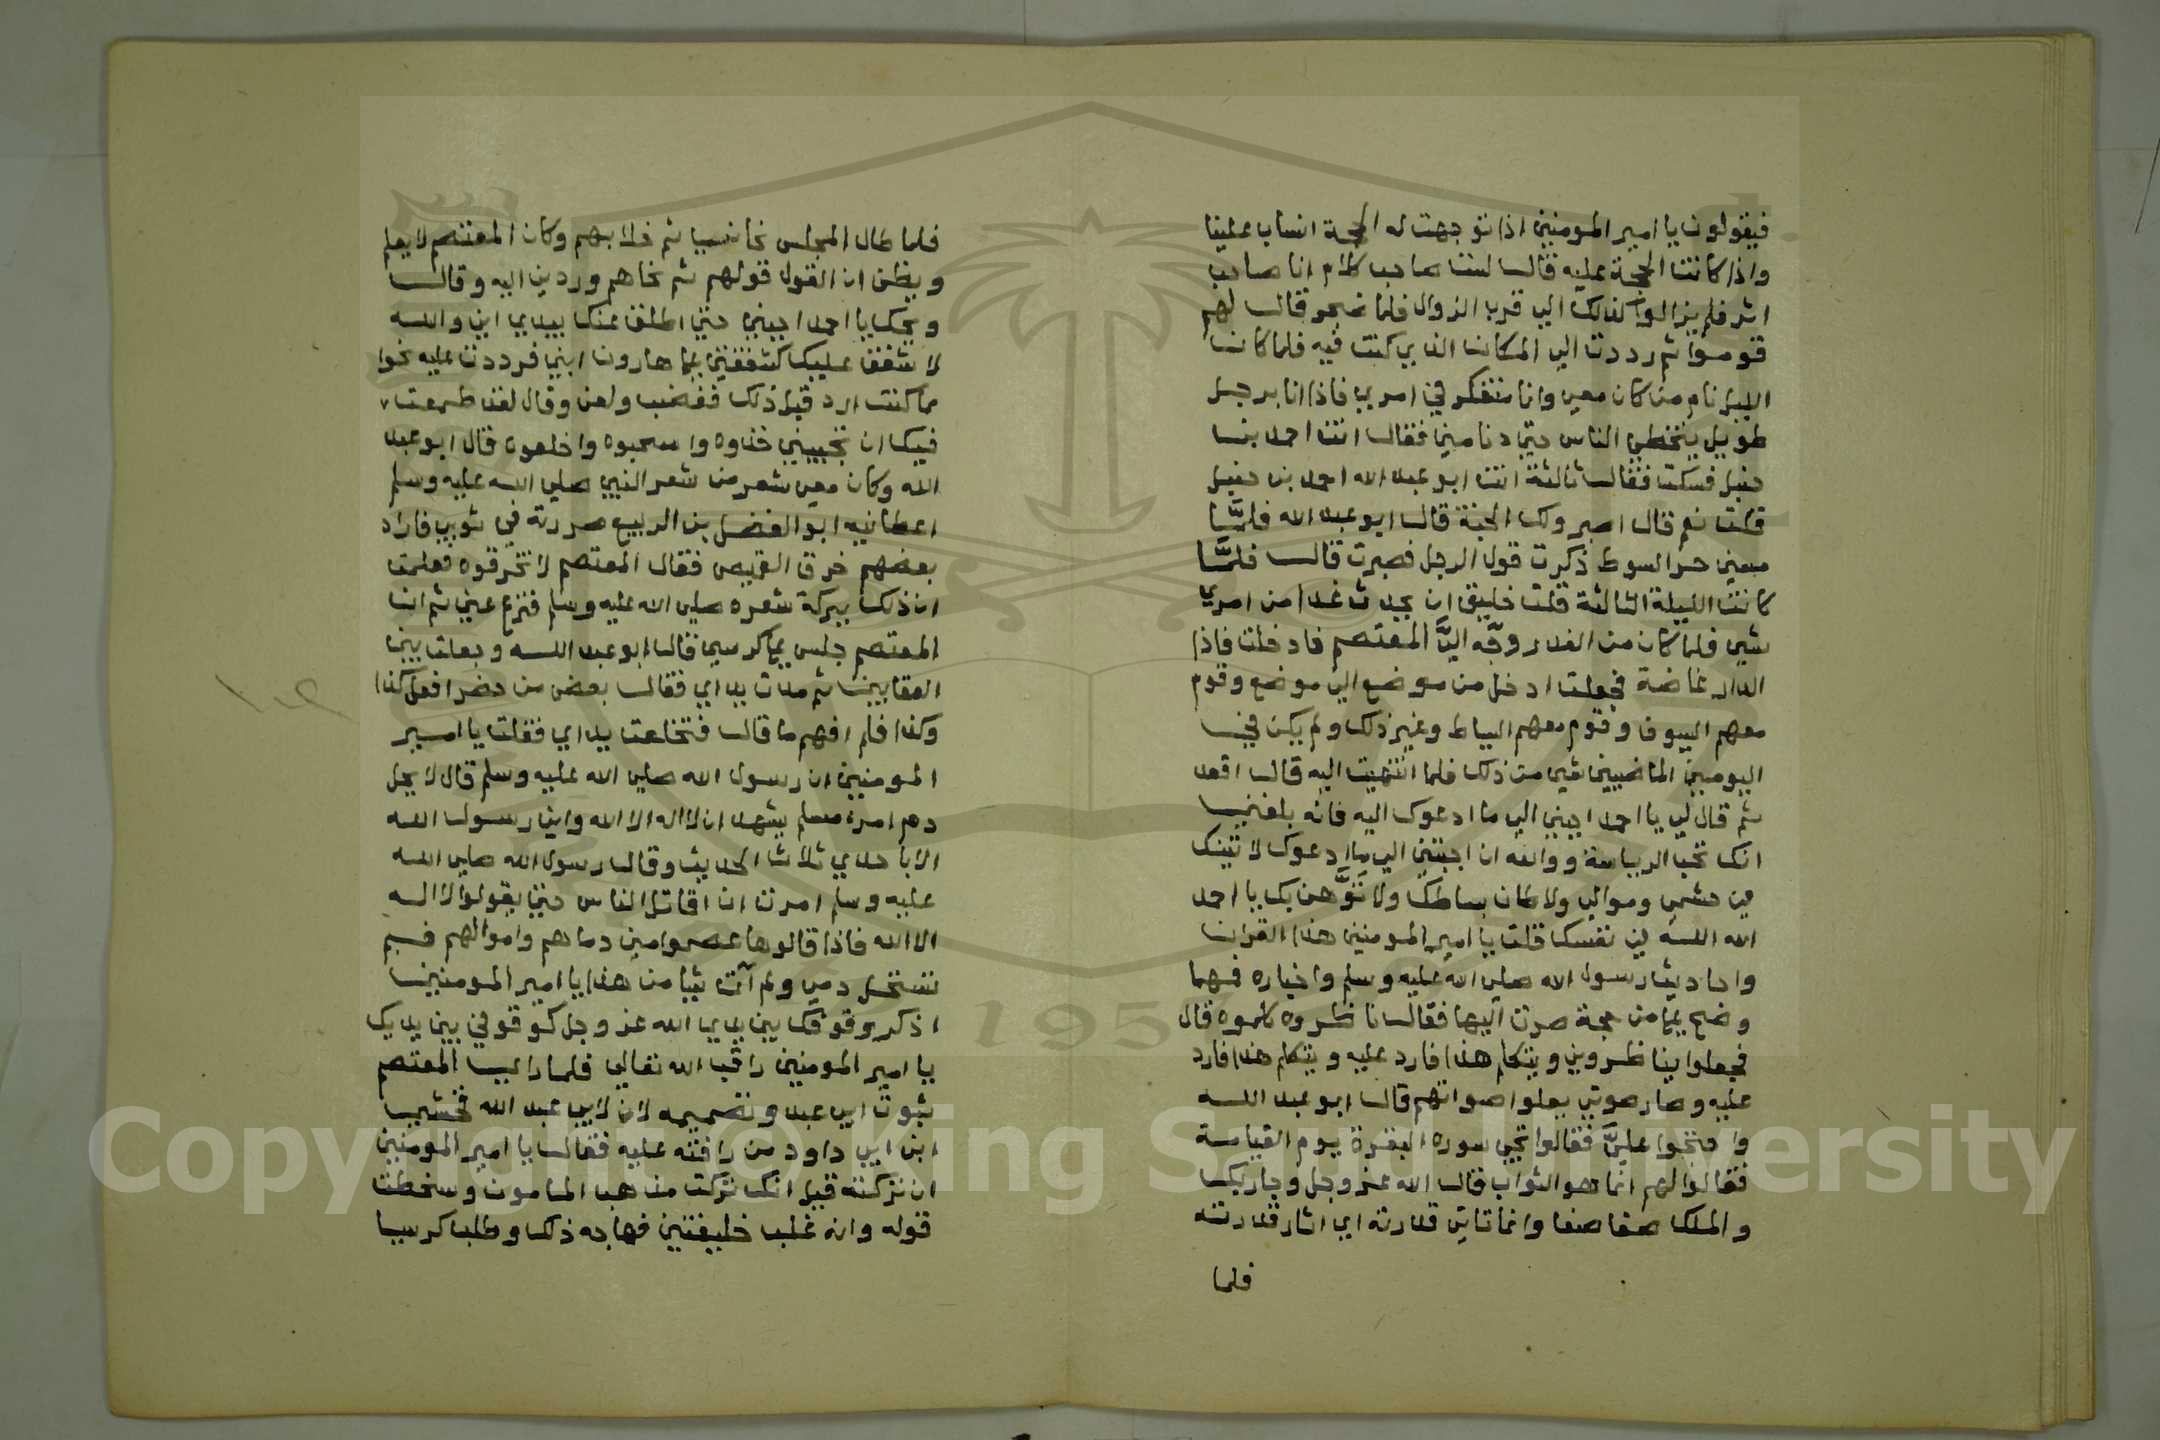 فيقولون يا امير المومنين اذا توجهت له الحجة انساب علينا
واذا كانت الحجة عليه قال لست صاحب كلام انا صاحب
اثر فلم يزالوا كذلك الي قرب الزوال فلما ضجر قال لهم
قوموا ثم رددت الي المكان الذي كنت فيه فلما كانت
الليل نام من كان معي وانا متفكر في امري فاذا انا برجل
طويل يتخطي الناس حتي دنا مني فقال انت احمد بن
حنبل فسكت فقال ثالثة انت ابو عبد الله احمد بن حنبل
قلت نعم قال اصبر ولك الجنة قال ابو عبد الله فلمَّا
مسني حر السوط ذكرت قول الرجل فصبرت قال فلمَّا
كانت الليلة الثالثة قلت خليق ان يحدث غدا من امري
شي فلما كان من الغد وجَّه اليَّ المعتصم فادخلت فاذا
الدار غاصة فجعلت ادخل من موضع الي موضع وقوم
معهم السيوف وقوم معهم السياط وغير ذلك ولم يكن في
اليومين الماضيين شي من ذلك فلما انتهيت اليه قال اقعد
ثم قال لي يا احمد اجبني الي ما ادعوك اليه فانه بلغني
انك تحب الرياسة ووالله ان اجبتني الي ما ادعوك لاتينك
في حشمي وموالي ولاطان بساطك ولانوَّهن بك يا احمد
الله الله في نفسك قلت يا امير المومنين هذا القران
واحاديث رسول الله صلي الله عليه وسلم واخياره فمهما
وضح لي من حجة صرت اليها فقال ناظروه كلموه قال
فجعلوا يناظروني ويتكلم هذا فارد عليه ويتكلم هذا فارد
عليه وصار صوتي يعلوا صواتهم قال ابو عبد الله
واحتجوا عليَّ فقالوا تجي سوره البقرة يوم القيامة
فقالوا لهم انما هو الثواب قال الله عز وجل وجا ربك
والملك صفا صفا وانما تاتي قدرته اي اثار قدرته
فلما
فلما طال المجلس نحا نسيا ثم خلا بهم وكان المعتصم لا يعلم
ويظن ان القول قولهم ثم نحاهم وردني اليه وقال
ويحك يا احمد اجبني حتي اطلق عنك بيدي اني والله
لا شفق عليك كشفقتي علي هارون ابني فرددت عليه نحوا
مما كنت ارد قبل ذلك فغضب ولعن وقال لقد طمعت
فيك ان تجيبني خذوه واسحبوه واخلعوه قال ابو عبد
الله وكان معي شعر من شعر النبي صلي الله عليه وسلم
اعطانيه ابو الفضل بن الربيع صررته في ثوبي فاراد
بعضهم خرق القميص فقال المعتصم لا تخرقوه فعلمت
ان ذلك ببركة شعره صلي الله عليه وسلم فنزع عني ثم ان
المعتصم جلس علي كرسي قال ابو عبد الله وجعلت بين
العقابين ثم مدت يداي فقال بعض من حضر افعل كذا
وكذا فلم افهم ما قال فتخلعت يداي فقلت يا امير
المومنين ان رسول الله صلي الله عليه وسلم قال لا يحل
دم امرء مسلم يشهد ان لا اله الا الله واني رسول الله
الا باحدي ثلاث الحديث وقال رسول الله صلي الله
عليه وسلم امرت ان اقاتل الناس حتي يقولوا لا اله
الا الله فاذا قالوها عصموا مني دماهم واموالهم فبم
تستحل دمي ولم آت شيا من هذا يا امير المومنين
اذكر وقوفك بين يدي الله عز وجل كوقوفي بين يديك
يا امير المومنين راقب الله تعالي فلما راي المعتصم
ثبوت ابي عبد وتصميمه لان لابي عبد الله فخشي
ابن ابي داود من رافته عليه فقال يا امير المومنين
ان تركته قيل انك تركت مذهب المامون وسخطت
قوله وانه غلب خليفتين فهاجه ذلك وطلب كرسيا
1957
Copyright © King Saud University